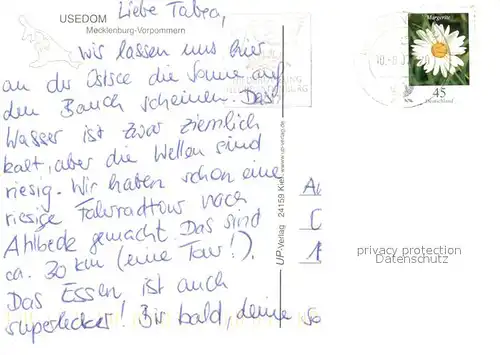 USEDOM
Mecklenburg-Vorpommern
Liebe Tabea,
wir lassen uns hier
an der Ostsee die Sonne auf
den Bauch scheinen. Das
Wasser ist zwar ziemlich
kalt, aber die Wellen sind
riesig. Wir haben schon eine
riesige Fahrradtour nach
Ahlbeck gemacht. Das sind
ca. 30 km (eine Tour!).
Das Essen ist auch
superlecker! Bis bald, deine
UP-Verlag 24159 Kiel
Margerite
45
Deutschland
privacy protection
Datenschutz